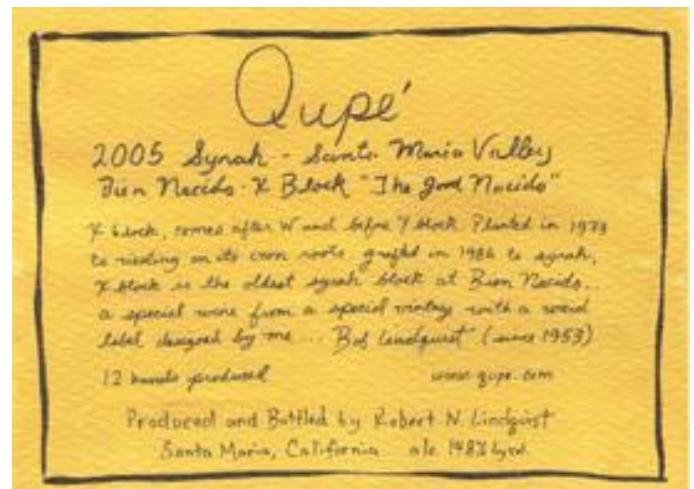 Qupé
2005 Syrah - Santa Maria Valley
Bien Nacido - X Block "The good Nacido"
X block, comes after W and before Y block. Planted in 1973
to riesling on its own roots grafted in 1986 to syrah,
X block is the oldest syrah block at Bien Nacido..
a special wine from a special vintage with a weird
label designed by me ... Bob Lindquist (since 1953)
12 barrels produced
www.qupe.com
Produced and Bottled by Robert N. Lindquist
Santa Maria, California alc 14.8% by vol.